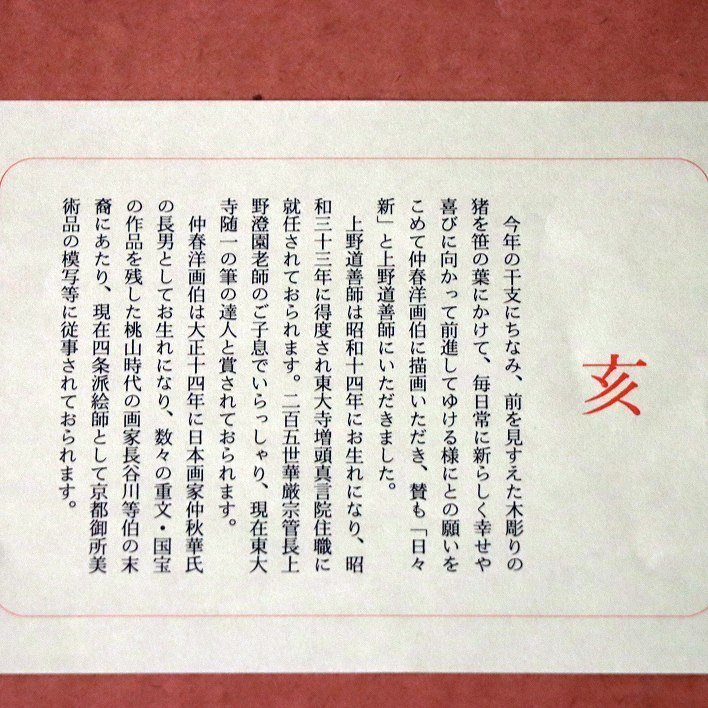 亥
今年の干支にちなみ、前を見すえた木彫りの
猪を笹の葉にかけて、毎日常に新らしく幸せや
喜びに向かって前進してゆける様にとの願いを
こめて仲春洋画伯に描画いただき、賛も「日々
新」と上野道善師にいただきました。
上野道善師は昭和十四年にお生れになり、昭
和三十三年に得度され東大寺塔頭真言院住職に
就任されております。二百五世華厳宗管長上
野澄園老師のご子息でいらっしゃり、現在東大
寺随一の筆の達人と賞されております。
仲春洋画伯は大正十四年に日本画家仲秋華氏
の長男としてお生れになり、数々の重文・国宝
の作品を残した桃山時代の画家長谷川等伯の末
裔にあたり、現在四条派絵師として京都御所美
術品の模写等に従事されております。